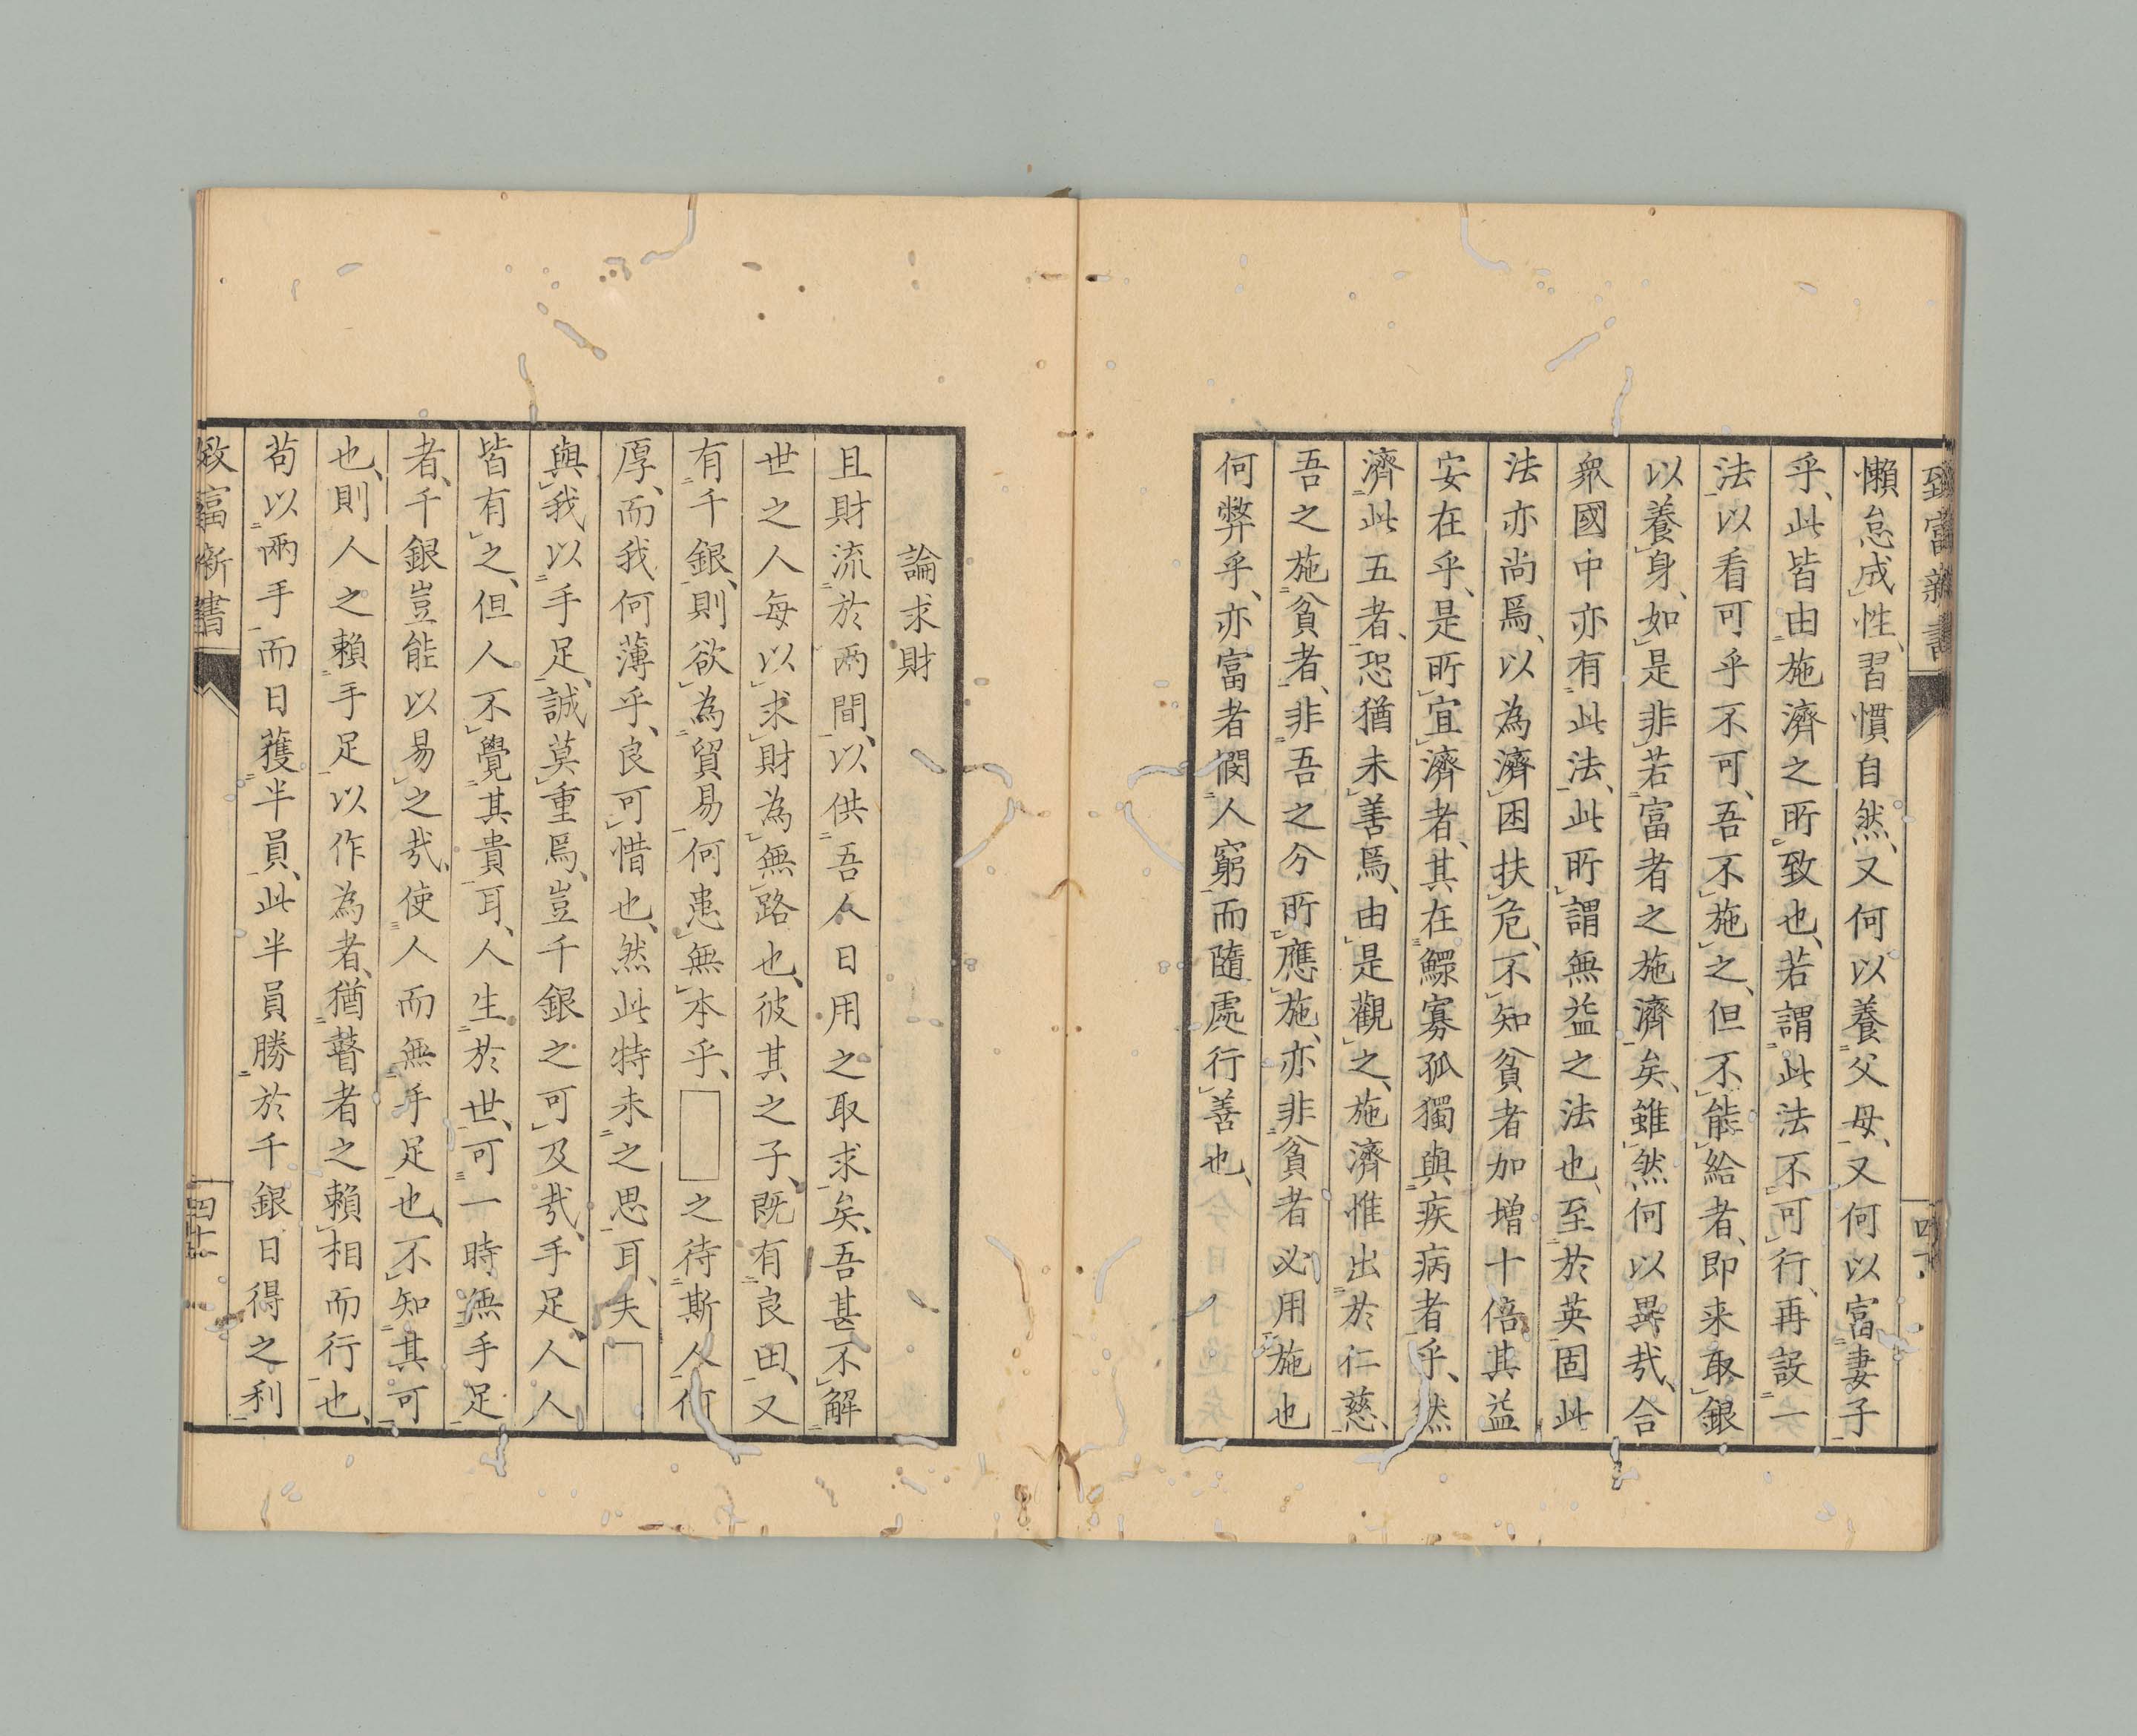 致富新書
四十
懶怠成性、習慣自然、又何以養父母、又何以富妻子
乎、此皆由施濟之所致也、若謂此法不可行、再設一
法以看可乎不可、吾不施之、但不能給者、即来取銀
以養身、如是非若富者之施濟矣、雖然何以異哉、合
衆國中亦有此法、此所謂無益之法也、至於英固此
法亦尚焉、以為濟困扶危、不知貧者加增十倍其益
安在乎、是所宜濟者、其在鰥寡孤獨與疾病者乎、然
濟此五者、恐猶未善焉、由是觀之、施濟惟出於仁慈、
吾之施貧者、非吾之分所應施、亦非貧者必用施也
何弊乎、亦富者憫人窮而隨處行善也、
論求財
且財流於兩間、以供吾人日用之取求矣、吾甚不解
世之人每以求財為無路也、彼其之子、既有良田、又
有千銀、則欲為貿易何患無本乎、□之待斯人何
厚、而我何薄乎、良可惜也、然此特未之思耳、夫□
與我以手足、誠莫重焉、豈千銀之可及哉、手足、人人
皆有之、但人不覺其貴耳、人生於世、可一時無手足
者、千銀豈能以易之哉、使人而無手足也、不知其可
也、則人之賴手足以作為者、猶瞽者之賴相而行也、
苟以兩手而日獲半員、此半員勝於千銀日得之利
致富新書
四十一